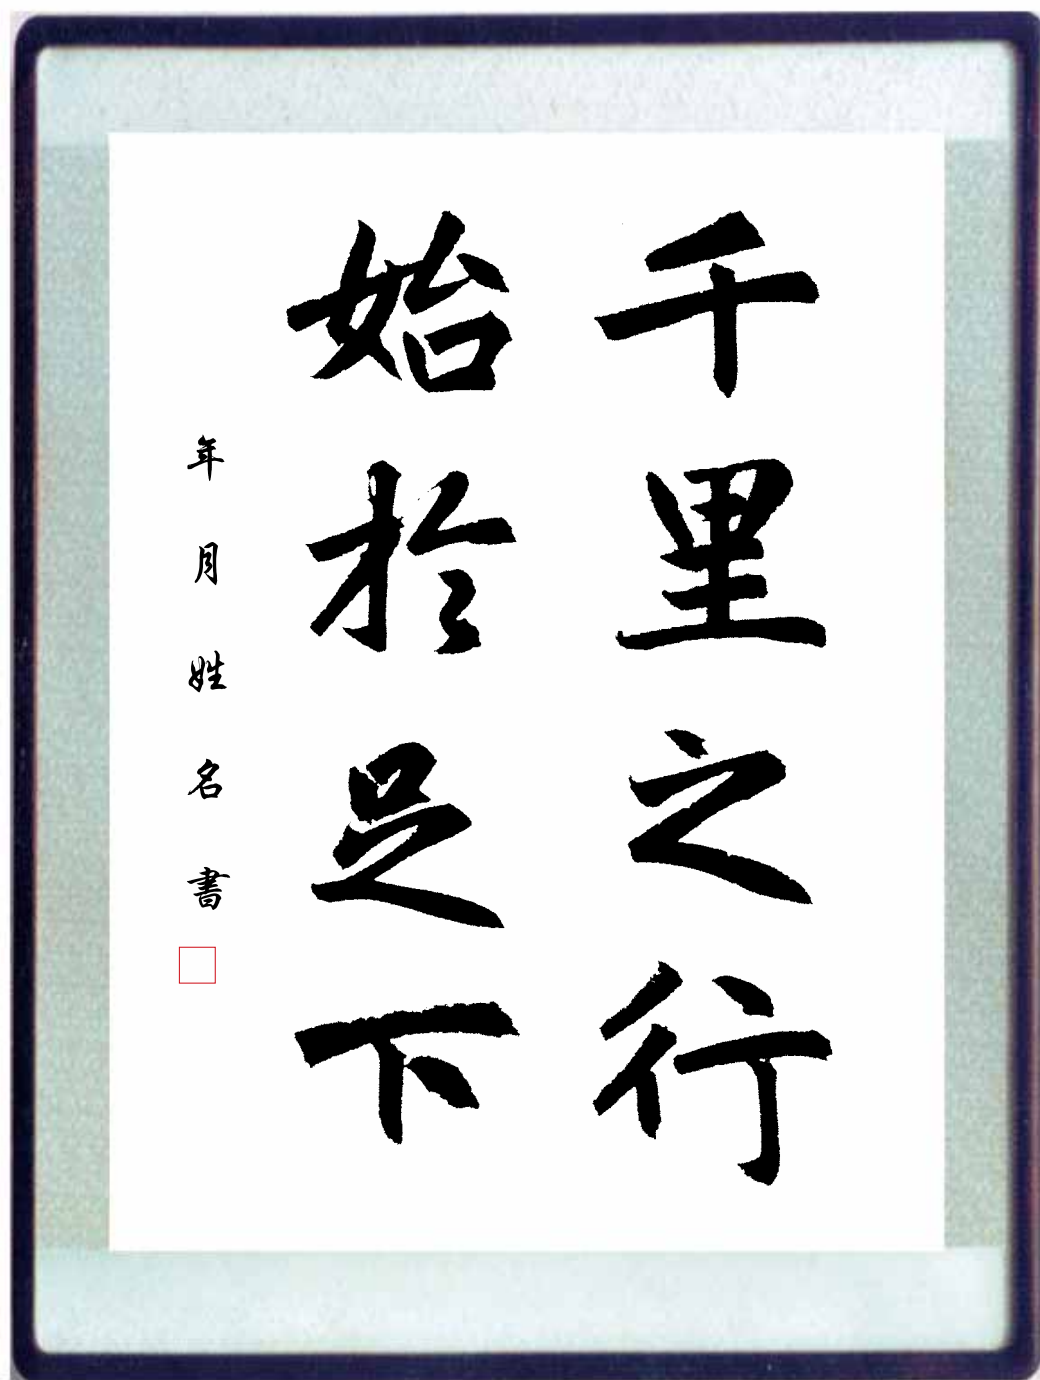 千里之行
始於足下
年月姓名書